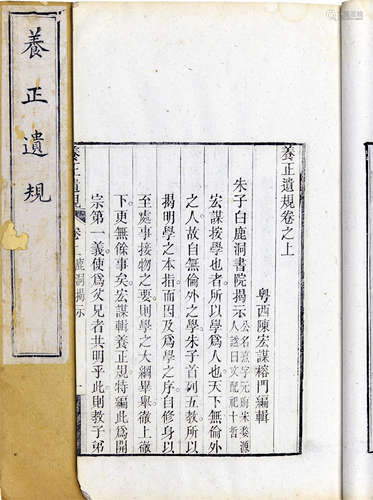 養正遺規
養正遺規卷之上
粵西陳宏謀榕門編輯
朱子白鹿洞書院揭示
公名熹字元晦宋婺源
人諡曰文配祀十哲
宏謀按學也者所以學爲人也天下無倫外
之人故自無倫外之學朱子首列五教所以
揭明學之本指而因及爲學之序自修身以
至處事接物之要則學之大綱畢舉徹上徹
下更無餘事矣宏謀輯養正規特編此爲開
宗第一義使爲父兄者共明乎此則教子弟
養正遺規
卷上
鹿洞揭示
一